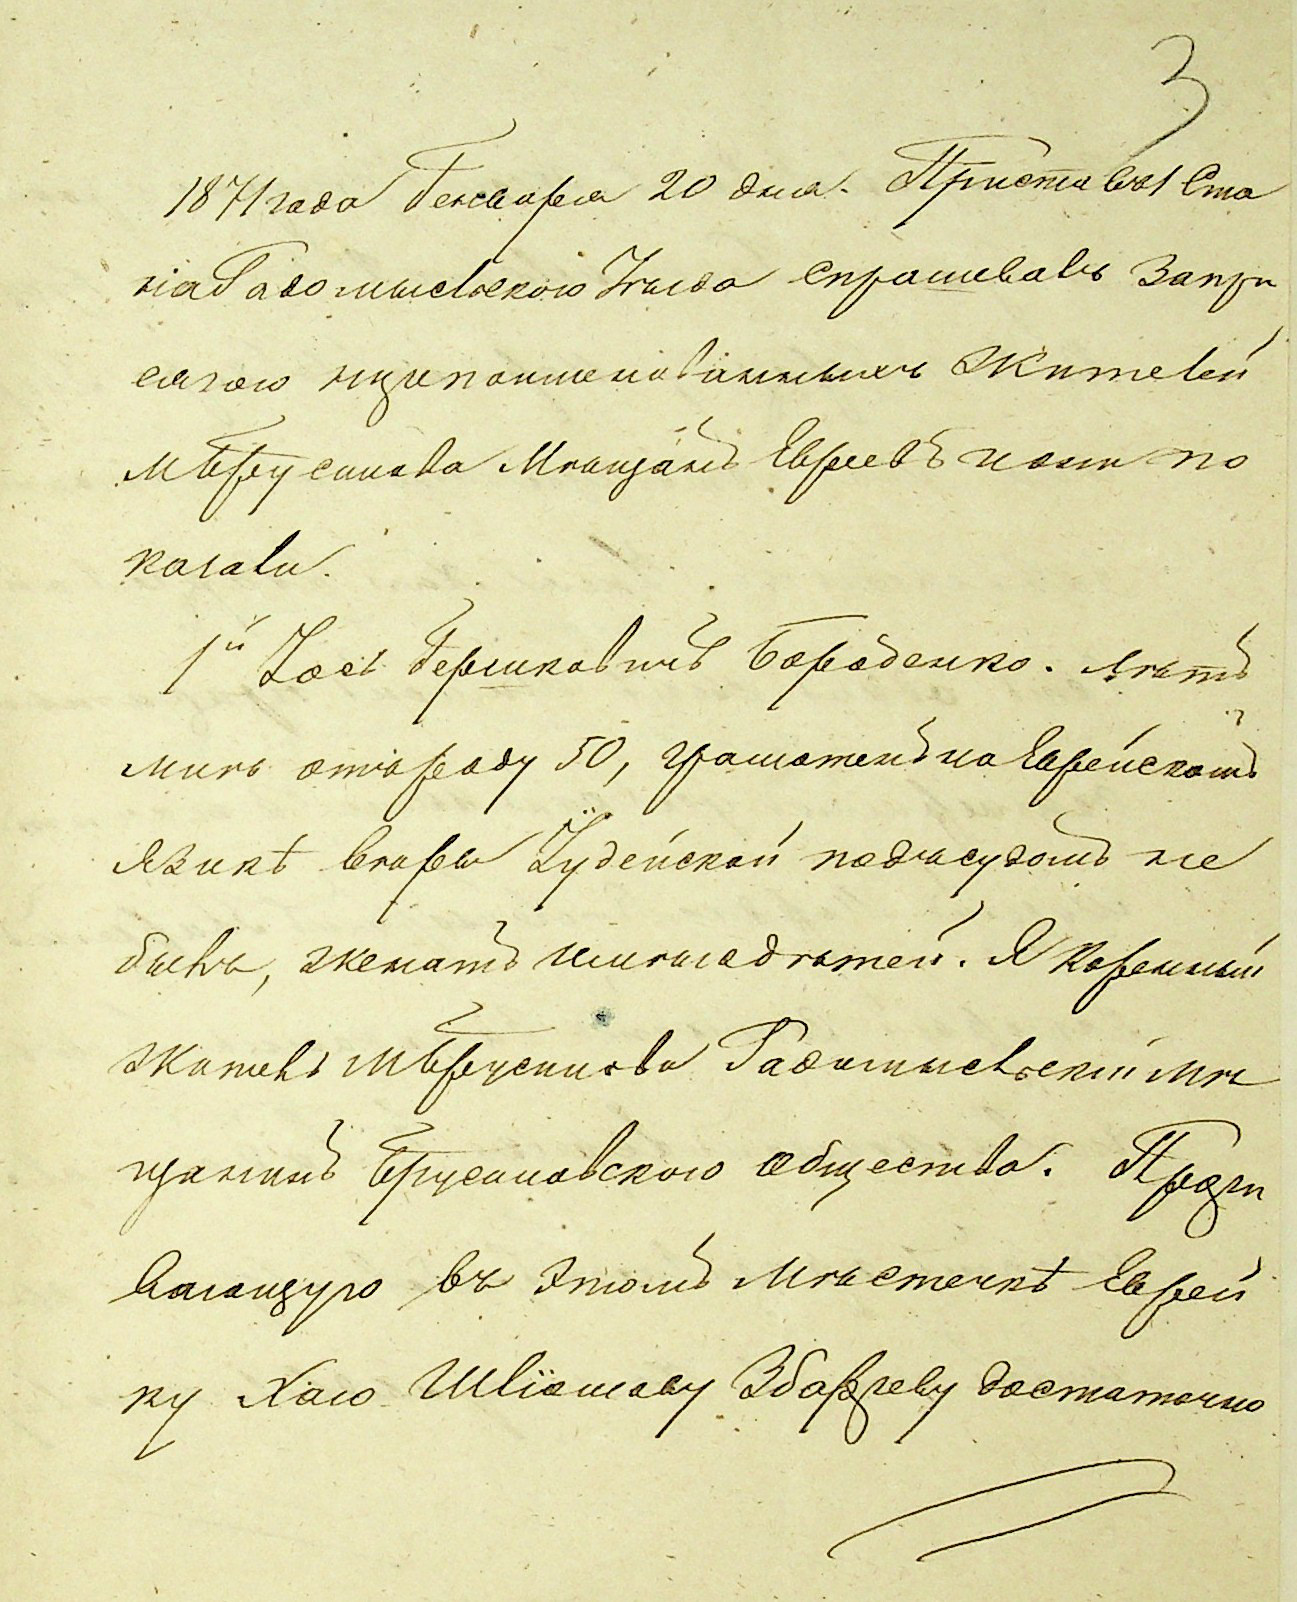 3
1871 года Генваря 20 дня. Приставъ 1 Ста
на Радомысльскаго Уѣзда спрашивалъ Запри
сягою нижепоименованныхъ Жителей
М Брусилова Мѣщанъ Евреевъ и они по
казали.
1й Іось Гершковичъ Бороденко. Лѣтъ
мнѣ отъ роду 50, грамотенъ на Еврейскомъ
Языкѣ вѣры Іудейской подъ судомъ не
былъ, женатъ имѣю дѣтей. Я коренный
житель М Брусилова Радомысльскій мѣ
щанинъ Брусиловскаго общества. Прожи
вающую въ этомъ Мѣстечкѣ Еврей
ку Хаю Шліомову Збаржеву достаточно